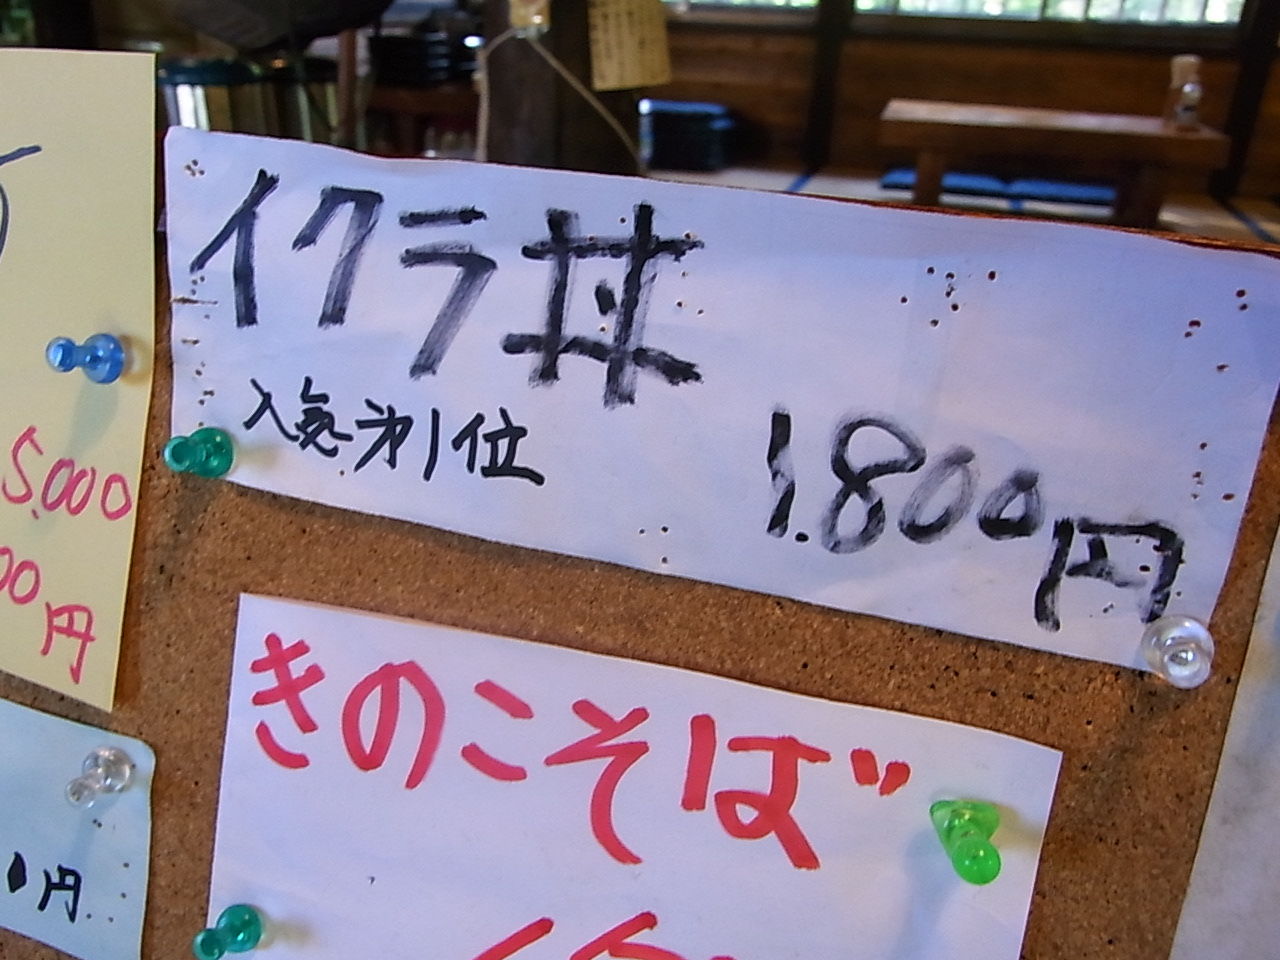 イクラ丼
人気第1位
1.800円
きのこそば
5.000
00円
円